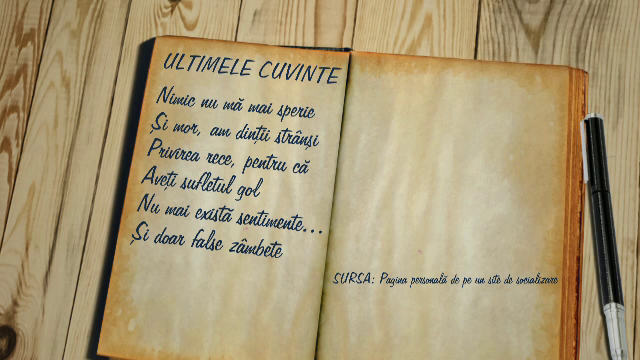 ULTIMELE CUVINTE
Nimic nu mă mai sperie
Și mor, am dinții strânși
Privirea rece, pentru că
Aveți sufletul gol
Nu mai există sentimente...
Și doar false zâmbete
SURSA: Pagina personală de pe un site de socializare